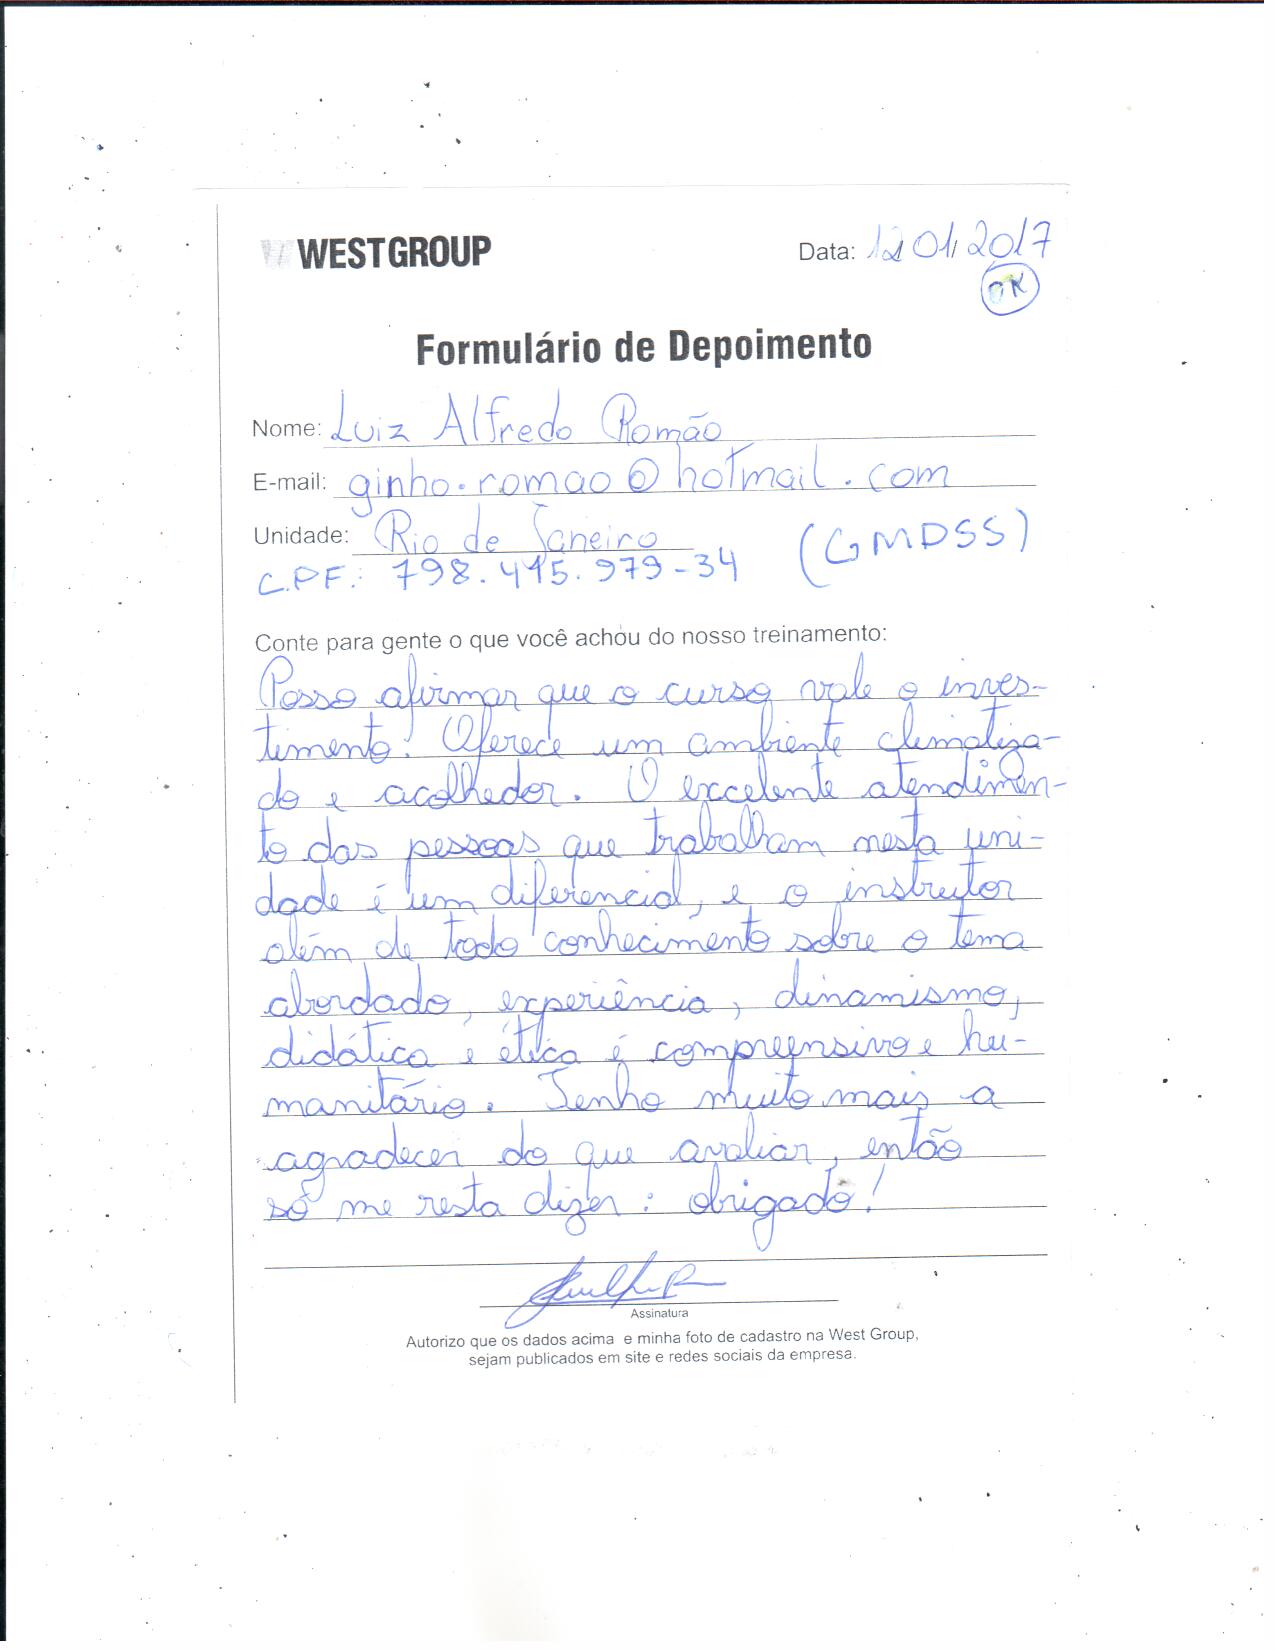 WESTGROUP
Data: 12 01 2017
OK
Formulário de Depoimento
Nome: Luiz Alfredo Romão
E-mail: ginho.romao@hotmail.com
Unidade: Rio de Janeiro (GMDSS)
C.P.F.: 798.415.979-34
Conte para gente o que você achou do nosso treinamento:
Posso afirmar que o curso vale o inves-
timento! Oferece um ambiente climatiza-
do e acolhedor. O excelente atendimen-
to das pessoas que trabalham nesta uni-
dade é um diferencial, e o instrutor
além de todo conhecimento sobre o tema
abordado, experiência, dinamismo,
didática e ética é compreensivo e hu-
manitário. Tenho muito mais a
agradecer do que avaliar, então
só me resta dizer: obrigado!
Assinatura
Autorizo que os dados acima e minha foto de cadastro na West Group,
sejam publicados em site e redes sociais da empresa.